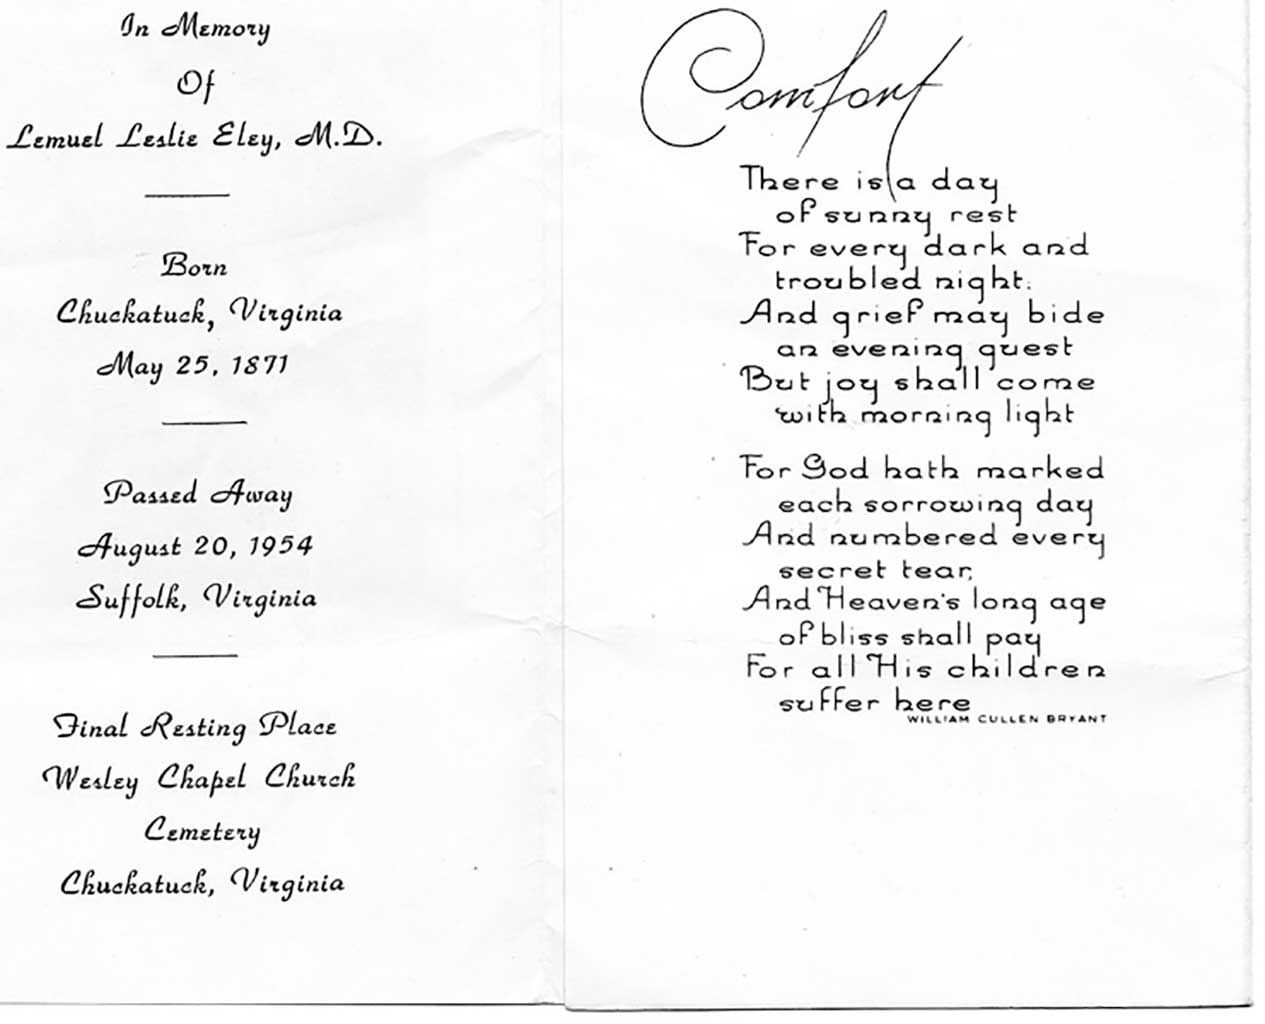 In Memory
Of
Lemuel Leslie Eley, M.D.
Born
Chuckatuck, Virginia
May 25, 1871
Passed Away
August 20, 1954
Suffolk, Virginia
Final Resting Place
Wesley Chapel Church
Cemetery
Chuckatuck, Virginia
Comfort
There is a day
of sunny rest
For every dark and
troubled night.
And grief may bide
an evening guest
But joy shall come
with morning light
For God hath marked
each sorrowing day
And numbered every
secret tear,
And Heaven's long age
of bliss shall pay
For all His children
suffer here
WILLIAM CULLEN BRYANT